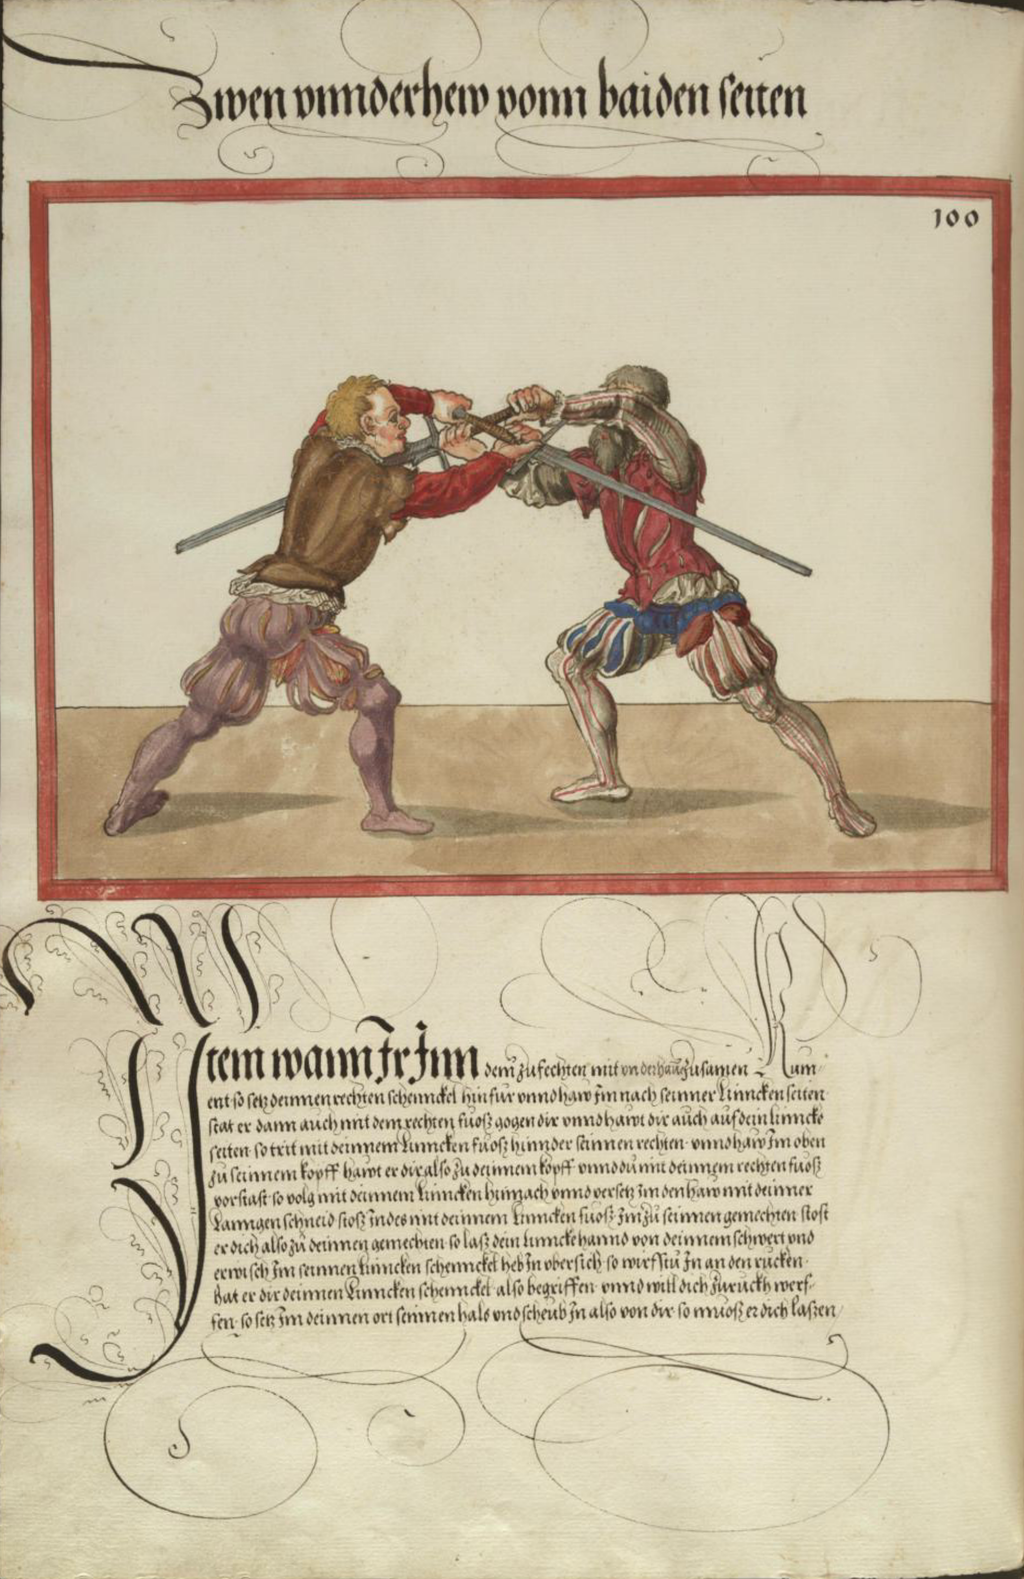 Zwen vnnderhew vonn baiden seiten
100
Item wann Ir Inn dem zufechten mit vnderhaw zusamen Kum
ent so setz deinnen rechten schennckel hinfur vnnd haw Im nach seinner Linncken seiten
stat er dann auch mit dem rechten fuosz gogen dir vnnd hawt dir auch auf dein linncke
seiten so trit mit deinnem Linncken fuosz hinnder seinnen rechten vnnd haw Im oben
zu seinnem kopff hawt er dir also zu deinnem kopff vnnd du mit deinnem rechten fuosz
vorstast so volg mit deinnem Linncken hinnach vnnd versetz Im den haw mit deinner
Lanngen schneid stosz Indes mit deinnem Linncken fuosz Im zu seinnen gemechten stost
er dich also zu deinnen gemechten so lasz dein linncke hannd von deinnem schwert vnd
erwisch Im seinnen Linncken schennckel heb In vbersich so wirfstu In an den rucken
Hat er dir deinnen Linncken schennckel also begriffen vnnd will dich zuruckh werf-
fen so setz Im deinnen ort seinnen hals vnd scheub In also von dir so muosz er dich laszen